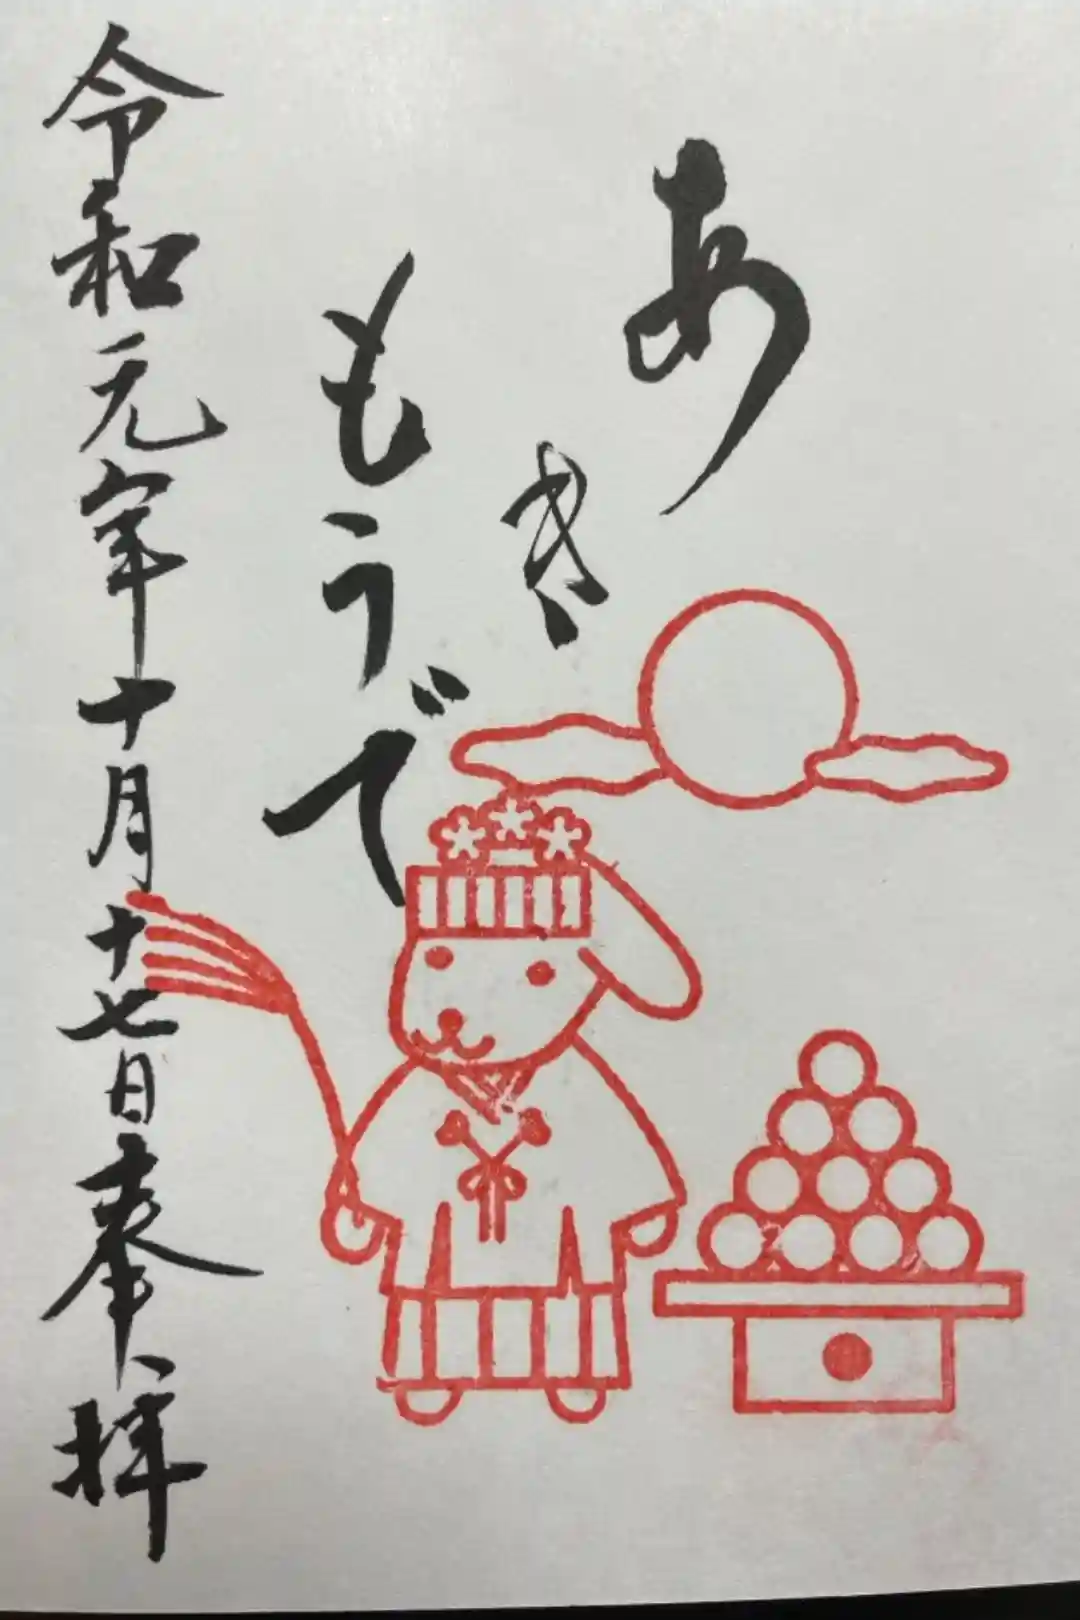 あき
もうで
令和元年十月十七日奉拝